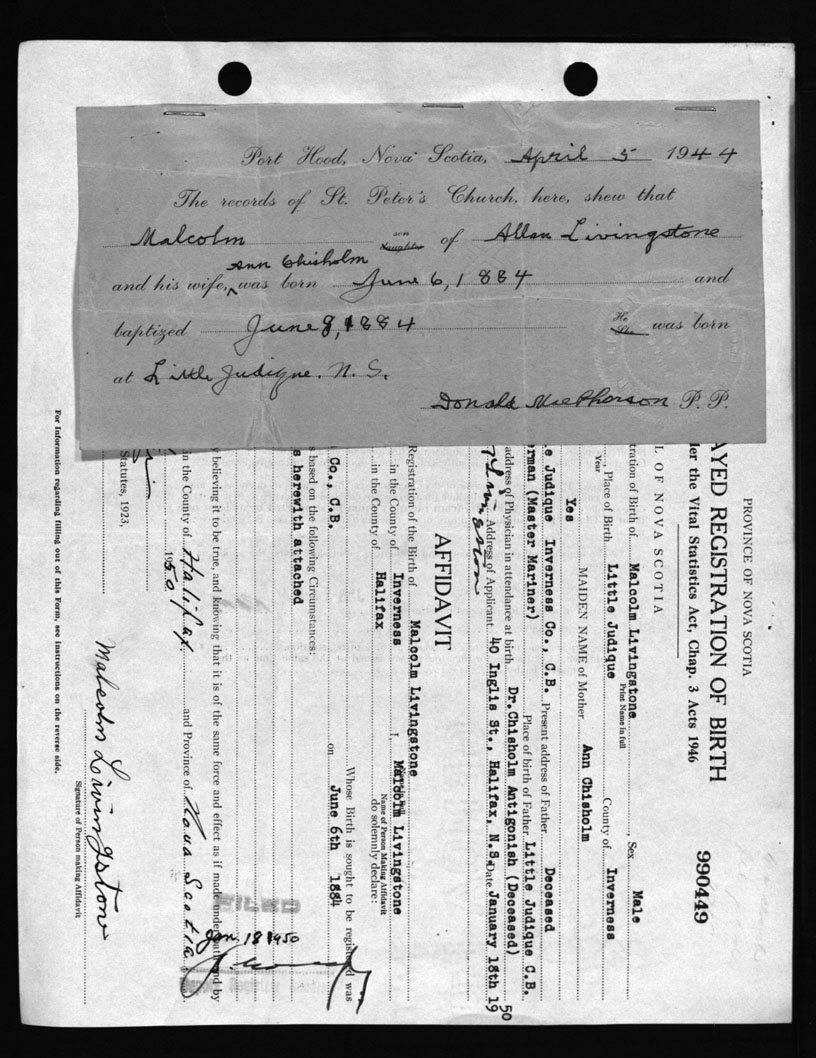 Port Hood, Nova Scotia, April 5 1944
The records of St. Peter's Church, here, shew that
Malcolm son daughter of Allan Livingstone
Ann Chisholm
and his wife, was born June 6, 1884 and
baptized June 8, 1884 He She was born
at Little Judique. N. S.
Donald MacPherson P. P.
PROVINCE OF NOVA SCOTIA
AYED REGISTRATION OF BIRTH 990449
er the Vital Statistics Act, Chap. 3 Acts 1946
L OF NOVA SCOTIA
tration of Birth of Malcolm Livingstone, Sex Male
Print Name in full
, Place of Birth Little Judique County of Inverness
Year
MAIDEN NAME of Mother Ann Chisholm
Yes
e Judique Inverness Co., C.B. Present address of Father Deceased
erman (Master Mariner) Place of birth of Father Little Judique C.B.
address of Physician in attendance at birth Dr. Chisholm Antigonish (Deceased)
Address of Applicant 40 Inglis St., Halifax, N.S. Date January 18th 19 50
AFFIDAVIT
Registration of the Birth of Malcolm Livingstone
in the County of Inverness I, Malcolm Livingstone
Name of Person Making Affidavit
in the County of Halifax do solemnly declare:
Whose Birth is sought to be registered was
Co., C.B. on June 6th 1884
s based on the following Circumstances:
s herewith attached
y believing it to be true, and knowing that it is of the same force and effect as if made under oath and by
in the County of Halifax and Province of Nova Scotia
1950 Jan. 18 1950
FILED
Statutes, 1923,
Malcolm Livingstone
Signature of Person making Affidavit
For Information regarding filling out of this Form, see instructions on the reverse side.